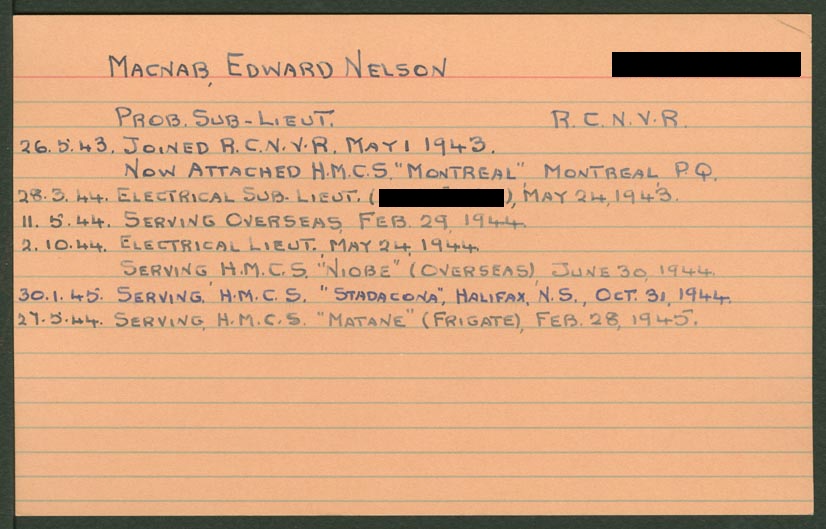 MACNAB, EDWARD NELSON
PROB. SUB-LIEUT. R.C.N.V.R.
26.5.43. JOINED R.C.N.V.R. MAY 1 1943.
NOW ATTACHED H.M.C.S. "MONTREAL" MONTREAL P.Q.
28.3.44. ELECTRICAL SUB-LIEUT. ( ), MAY 24, 1943.
11.5.44. SERVING OVERSEAS, FEB. 29, 1944.
2.10.44. ELECTRICAL LIEUT. MAY 24, 1944.
SERVING H.M.C.S. "NIOBE" (OVERSEAS) JUNE 30, 1944.
30.1.45. SERVING, H.M.C.S. "STADACONA", HALIFAX, N.S., OCT. 31, 1944.
27.5.44. SERVING, H.M.C.S. "MATANE" (FRIGATE), FEB. 28, 1945.